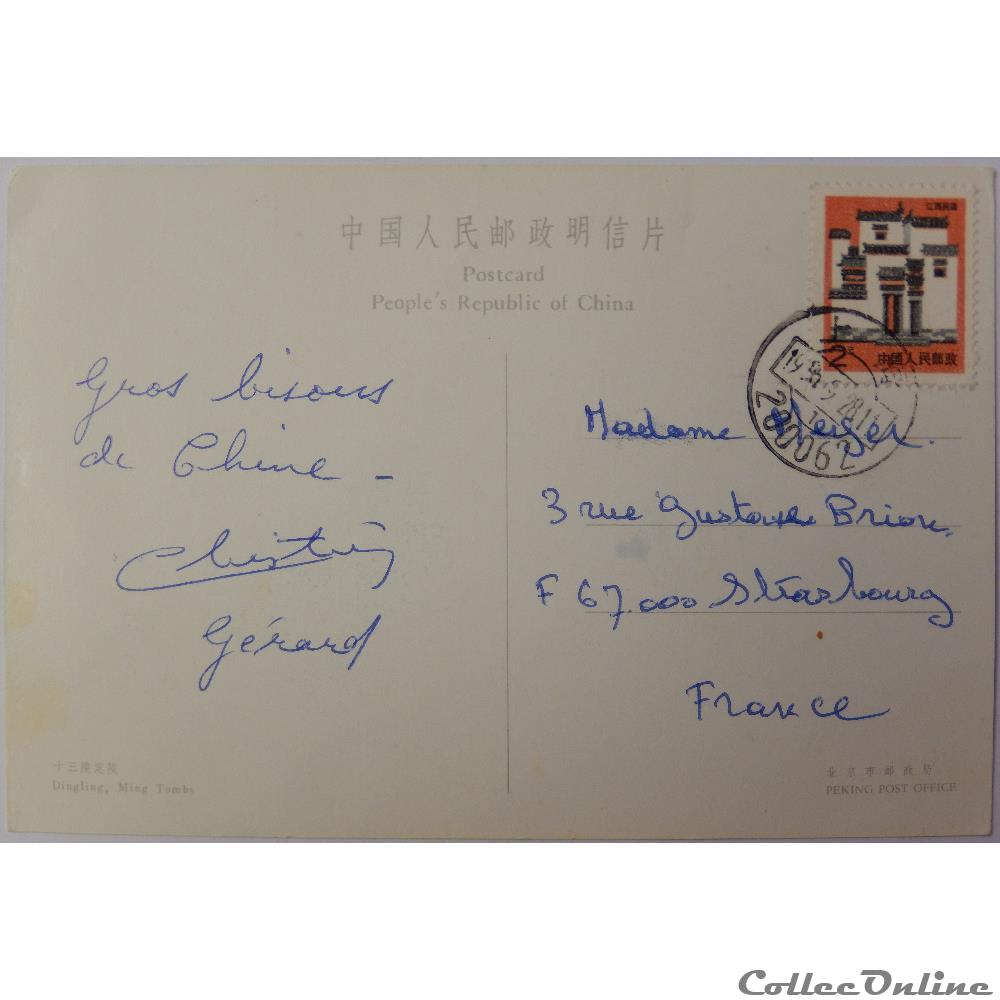 中国人民邮政明信片
Postcard
People's Republic of China
江西民居
2
中国人民邮政
200062
Gros bisous
de Chine –
Gérard
Madame
3 rue Gustave Brion.
F 67.000 Strasbourg
France
十三陵定陵
Dingling, Ming Tombs
北京市邮政局
PEKING POST OFFICE
CollecOnline